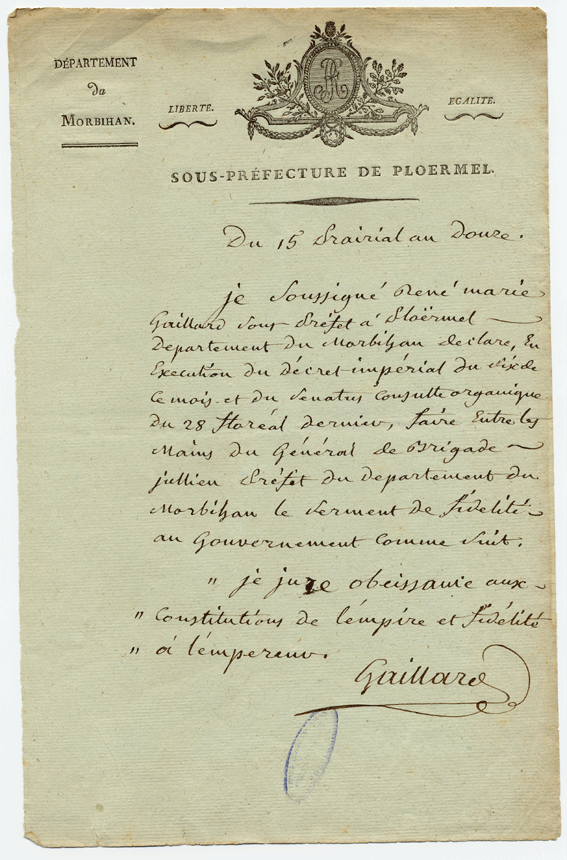 DÉPARTEMENT
du
MORBIHAN.
LIBERTE.
EGALITE.
SOUS-PRÉFECTURE DE PLOERMEL.
Du 15 Prairial an Douze.
je Soussigné René marie
Gaillard Sous Préfet à Ploërmel
Departement du Morbihan declare, En
Execution du Décret impérial du Six de
Ce mois et du Senatus Consulte organique
du 28 floréal dernier, faire Entre les
Mains du Général de Brigade
jullien Préfet du departement du
Morbihan le Serment de fidelité
au Gouvernement Comme Suit.
" je jure obeissance aux
" Constitutions de l'émpire et fidélité
" à l'émpereur.
Gaillard